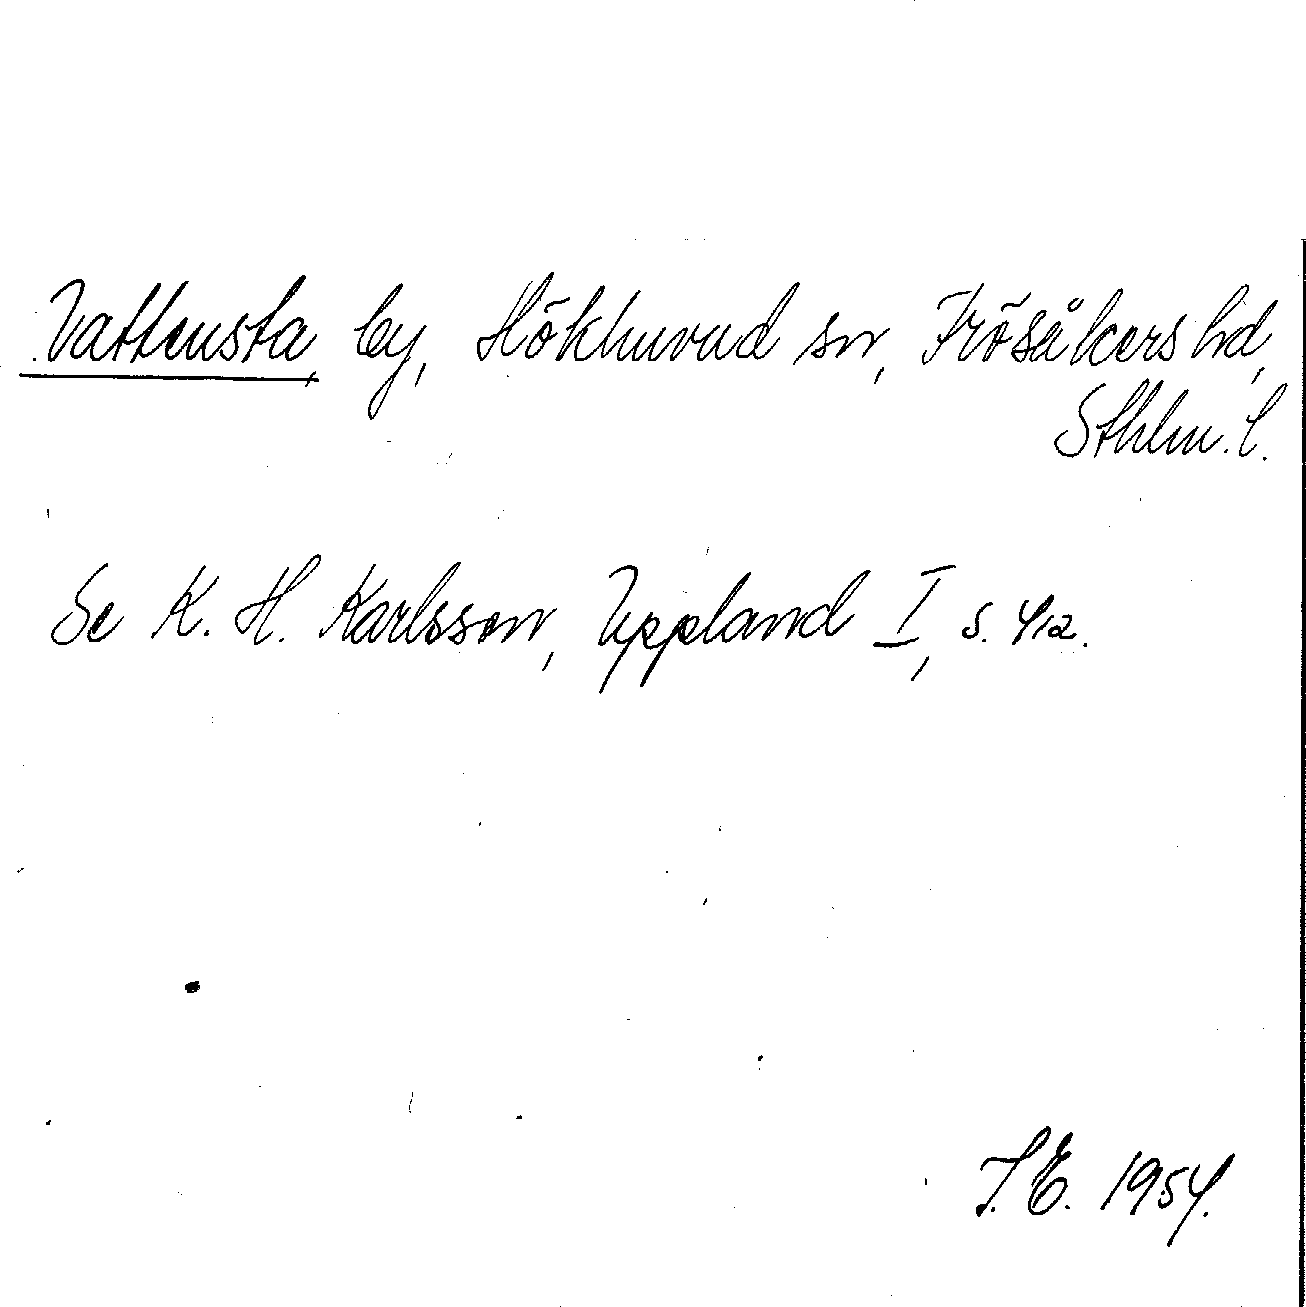 Vattensta, by, Hökhuvud sn, Frösåkers hd,
Sthlm. l.
Se K. H. Karlsson, Uppland I, s. 412.
J.E. 1954.